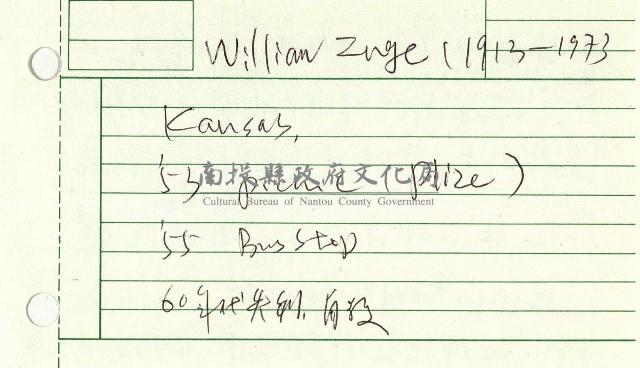 Willian Inge (1913-1973
Kansas,
'53 picnic (Plize)
南投縣政府文化局
Cultural Bureau of Nantou County Government
'55 Bus Stop
60年代失利,自殺